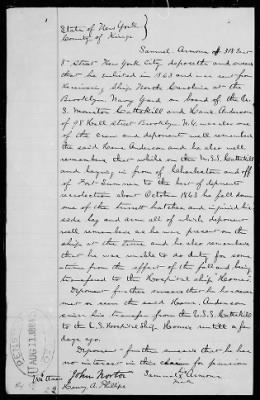 State of New York
County of Kings
Samuel Armour of 318 East
8th Street New York City deposeth and avers
that he enlisted in 1863 and was sent from
Receiving Ship North Carolina at the
Brooklyn Navy Yard on board of the U.
S. Monitor Cattskill and Hans Anderson
of 98 Hall Street Brooklyn N.Y. was also one
of the crew and deponent well remembers
the said Hans Anderson and he also well
remembers that while on the U.S.S. Cattskill
and laying in front of Charleston and off
of Fort Sumner to the best of deponents
recollection about October 1863 he fell down
one of the turret hatches and injured his
side leg and arm all of which deponent
well remembers as he was present on the
ship at the time and he also remembers
that he was unable to do duty for some
time from the effect of the fall and being
transferred to the Hospital ship Home.
Deponent further swears that he has never
met or seen the said Hans Anderson
since his transfer from the U.S.S. Cattskill
to the U.S. Hospital Ship Home until a few
days ago.
Deponent further swears that he has
no interest in this claim for pension
John Norton
Samuel Armour
his
mark
Henry A. Phillips